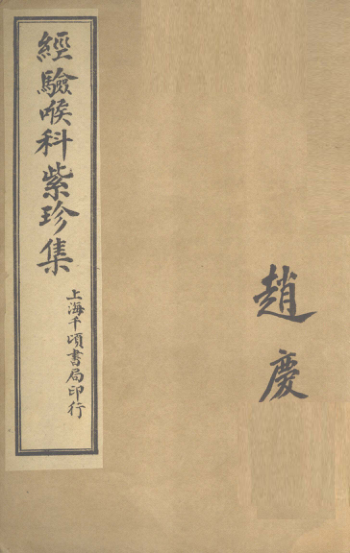 經驗喉科紫珍集
上海千頃書局印行
趙慶